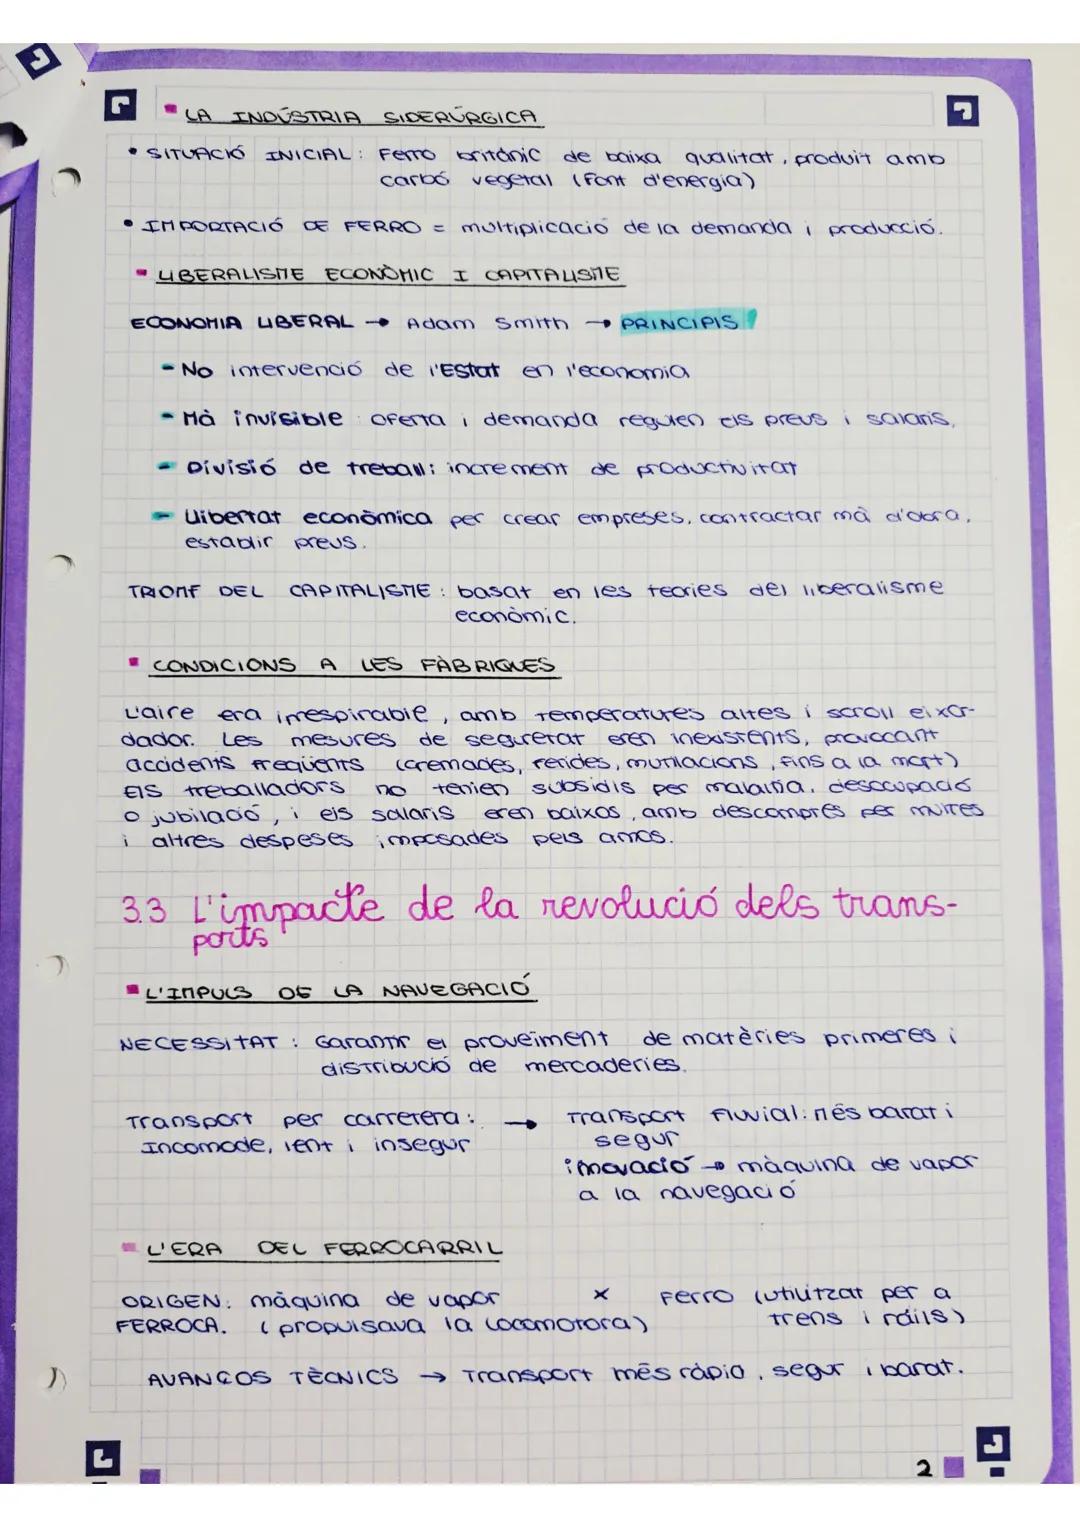 LA INDÚSTRIA SIDERÚRGICA
• SITUACIÓ INICIAL: Ferro britànic de baixa qualitat, produït amb
carbó vegetal (font d'energia)
• IMPORTACIÓ DE FERRO = multiplicació de la demanda i producció.
LIBERALISME ECONÒMIC I CAPITALISME
ECONOMIA LIBERAL → Adam Smith → PRINCIPIS
- No intervenció de l'Estat en l'economia
- Mà invisible: oferta i demanda regulen els preus i salaris.
- Divisió de treball: increment de productivitat
- Llibertat econòmica per crear empreses, contractar mà d'obra,
establir preus.
TRIOMF DEL CAPITALISME: basat en les teories del liberalisme
econòmic.
CONDICIONS A LES FÀBRIQUES
L'aire era irrespirable, amb temperatures altes i soroll eixor-
dador. Les mesures de seguretat eren inexistents, provocant
accidents freqüents (cremades, ferides, mutilacions, fins a la mort)
Els treballadors no tenien subsidis per malaltia, desocupació
o jubilació, i els salaris eren baixos, amb descomptes per multes
i altres despeses imposades pels amos.
3.3 L'impacte de la revolució dels trans-
ports
L'IMPULS DE LA NAVEGACIÓ
NECESSITAT: Garantir el proveïment de matèries primeres i
distribució de mercaderies.
Transport per carretera: → Transport fluvial: més barat i
Incomode, lent i insegur segur
innovació → màquina de vapor
a la navegació
L'ERA DEL FERROCARRIL
ORIGEN: màquina de vapor x Ferro (utilitzat per a
FERROCA. (propulsava la locomotora) trens i raïls)
AVANÇOS TÈCNICS → Transport més ràpid, segur i barat.
2